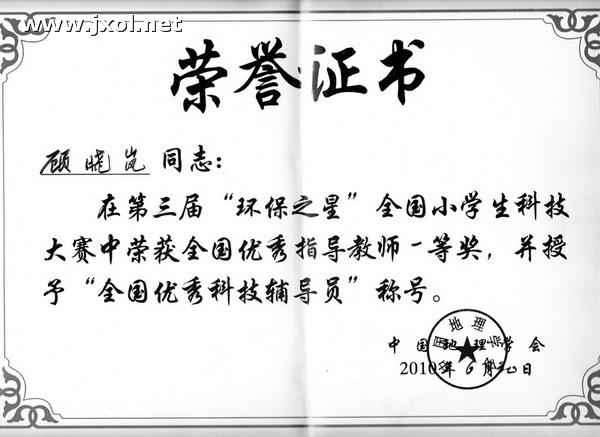 www.jxol.net
荣誉证书
顾晓岚 同志：
在第三届“环保之星”全国小学生科技
大赛中荣获全国优秀指导教师一等奖，并授
予“全国优秀科技辅导员”称号。
中国地理学会
2010年6月